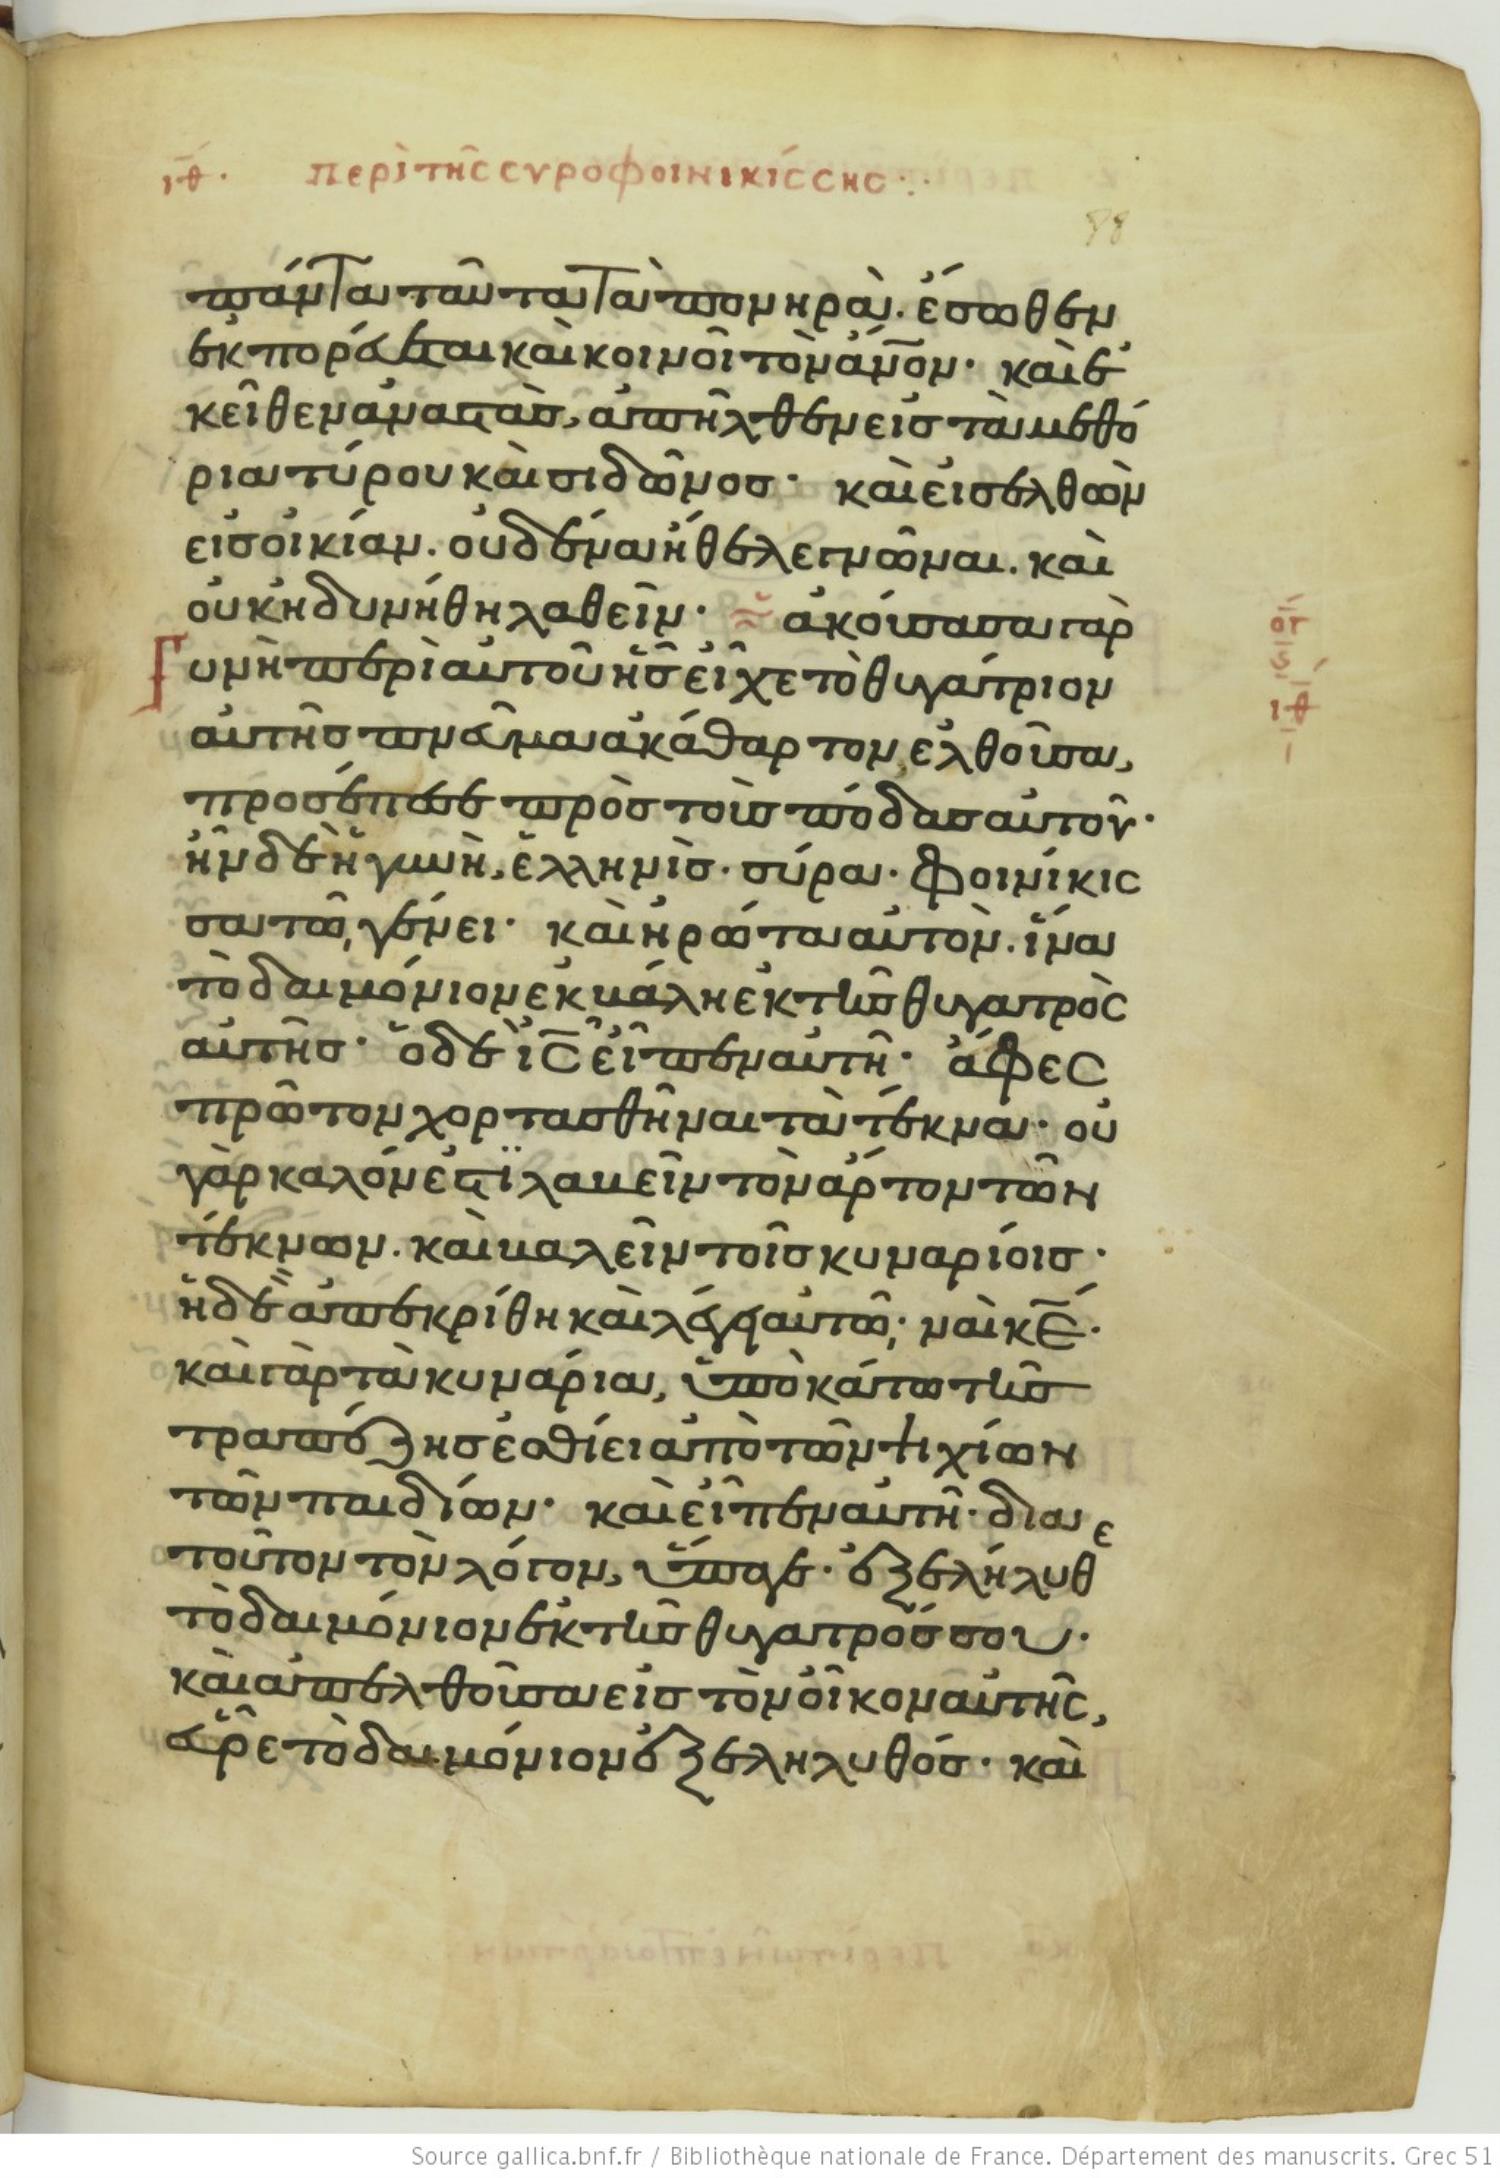 ιθ. περὶ τῆς συροφοινικίσσης
98
πάντα ταῦτα τὰ πονηρὰ. ἔσωθεν
ἐκπορεύεται καὶ κοινοῖ τὸν ἄνον· καὶ ἐ
κεῖθεν ἀναστὰς, ἀπῆλθεν εἰς τὰ μεθό
ρια τύρου καὶ σιδῶνος· καὶ εἰσελθὼν
εἰς οἰκίαν. οὐδένα ἤθελε γνῶναι. καὶ
οὐκ ηδυνήθη λαθεῖν· ἀκούσασα γὰρ
Γυνὴ περὶ αὐτοῦ ἧς εἶχε τὸ θυγάτριον
αὐτῆς πνεῦμα ἀκάθαρτον, ἐλθοῦσα,
προσέπεσε πρὸς τοὺς πόδας αὐτοῦ·
ἦν δὲ ἡ γυνὴ, ἑλληνὶς· σύρα· φοινίκισ
σα τῶ γένει· καὶ ἠρώτα αὐτὸν. ἵνα
τὸ δαιμόνιον ἐκβάλη ἐκ τῆς θυγατρὸς
αὐτῆς· ὁ δὲ ις εἶπεν αὐτῆ· ἄφες
πρῶτον χορτασθῆναι τὰ τέκνα· οὐ
γὰρ καλόν ἐστι λαβεῖν τὸν ἄρτον τῶν
τέκνων. καὶ βαλεῖν τοῖς κυναρίοις·
ἡ δὲ ἀπεκρίθη καὶ λέγει αὐτῶ· ναὶ κε·
καὶ γὰρ τὰ κυνάρια, ὑποκάτω τῆς
τραπέζης ἐσθίει ἀπὸ τῶν ψιχίων
τῶν παιδίων· καὶ εἶπεν αὐτῆ· δια
τοῦτον τὸν λόγον, ὕπαγε· ἐξελήλυθε
τὸ δαιμόνιον ἐκ τῆς θυγατρός σου·
καὶ ἀπελθοῦσα εἰς τὸν οἶκον αὐτῆς,
εὗρε τὸ δαιμόνιον ἐξεληλυθός· καὶ
ογ
ς
ιθ
Source gallica.bnf.fr / Bibliothèque nationale de France. Département des manuscrits. Grec 51